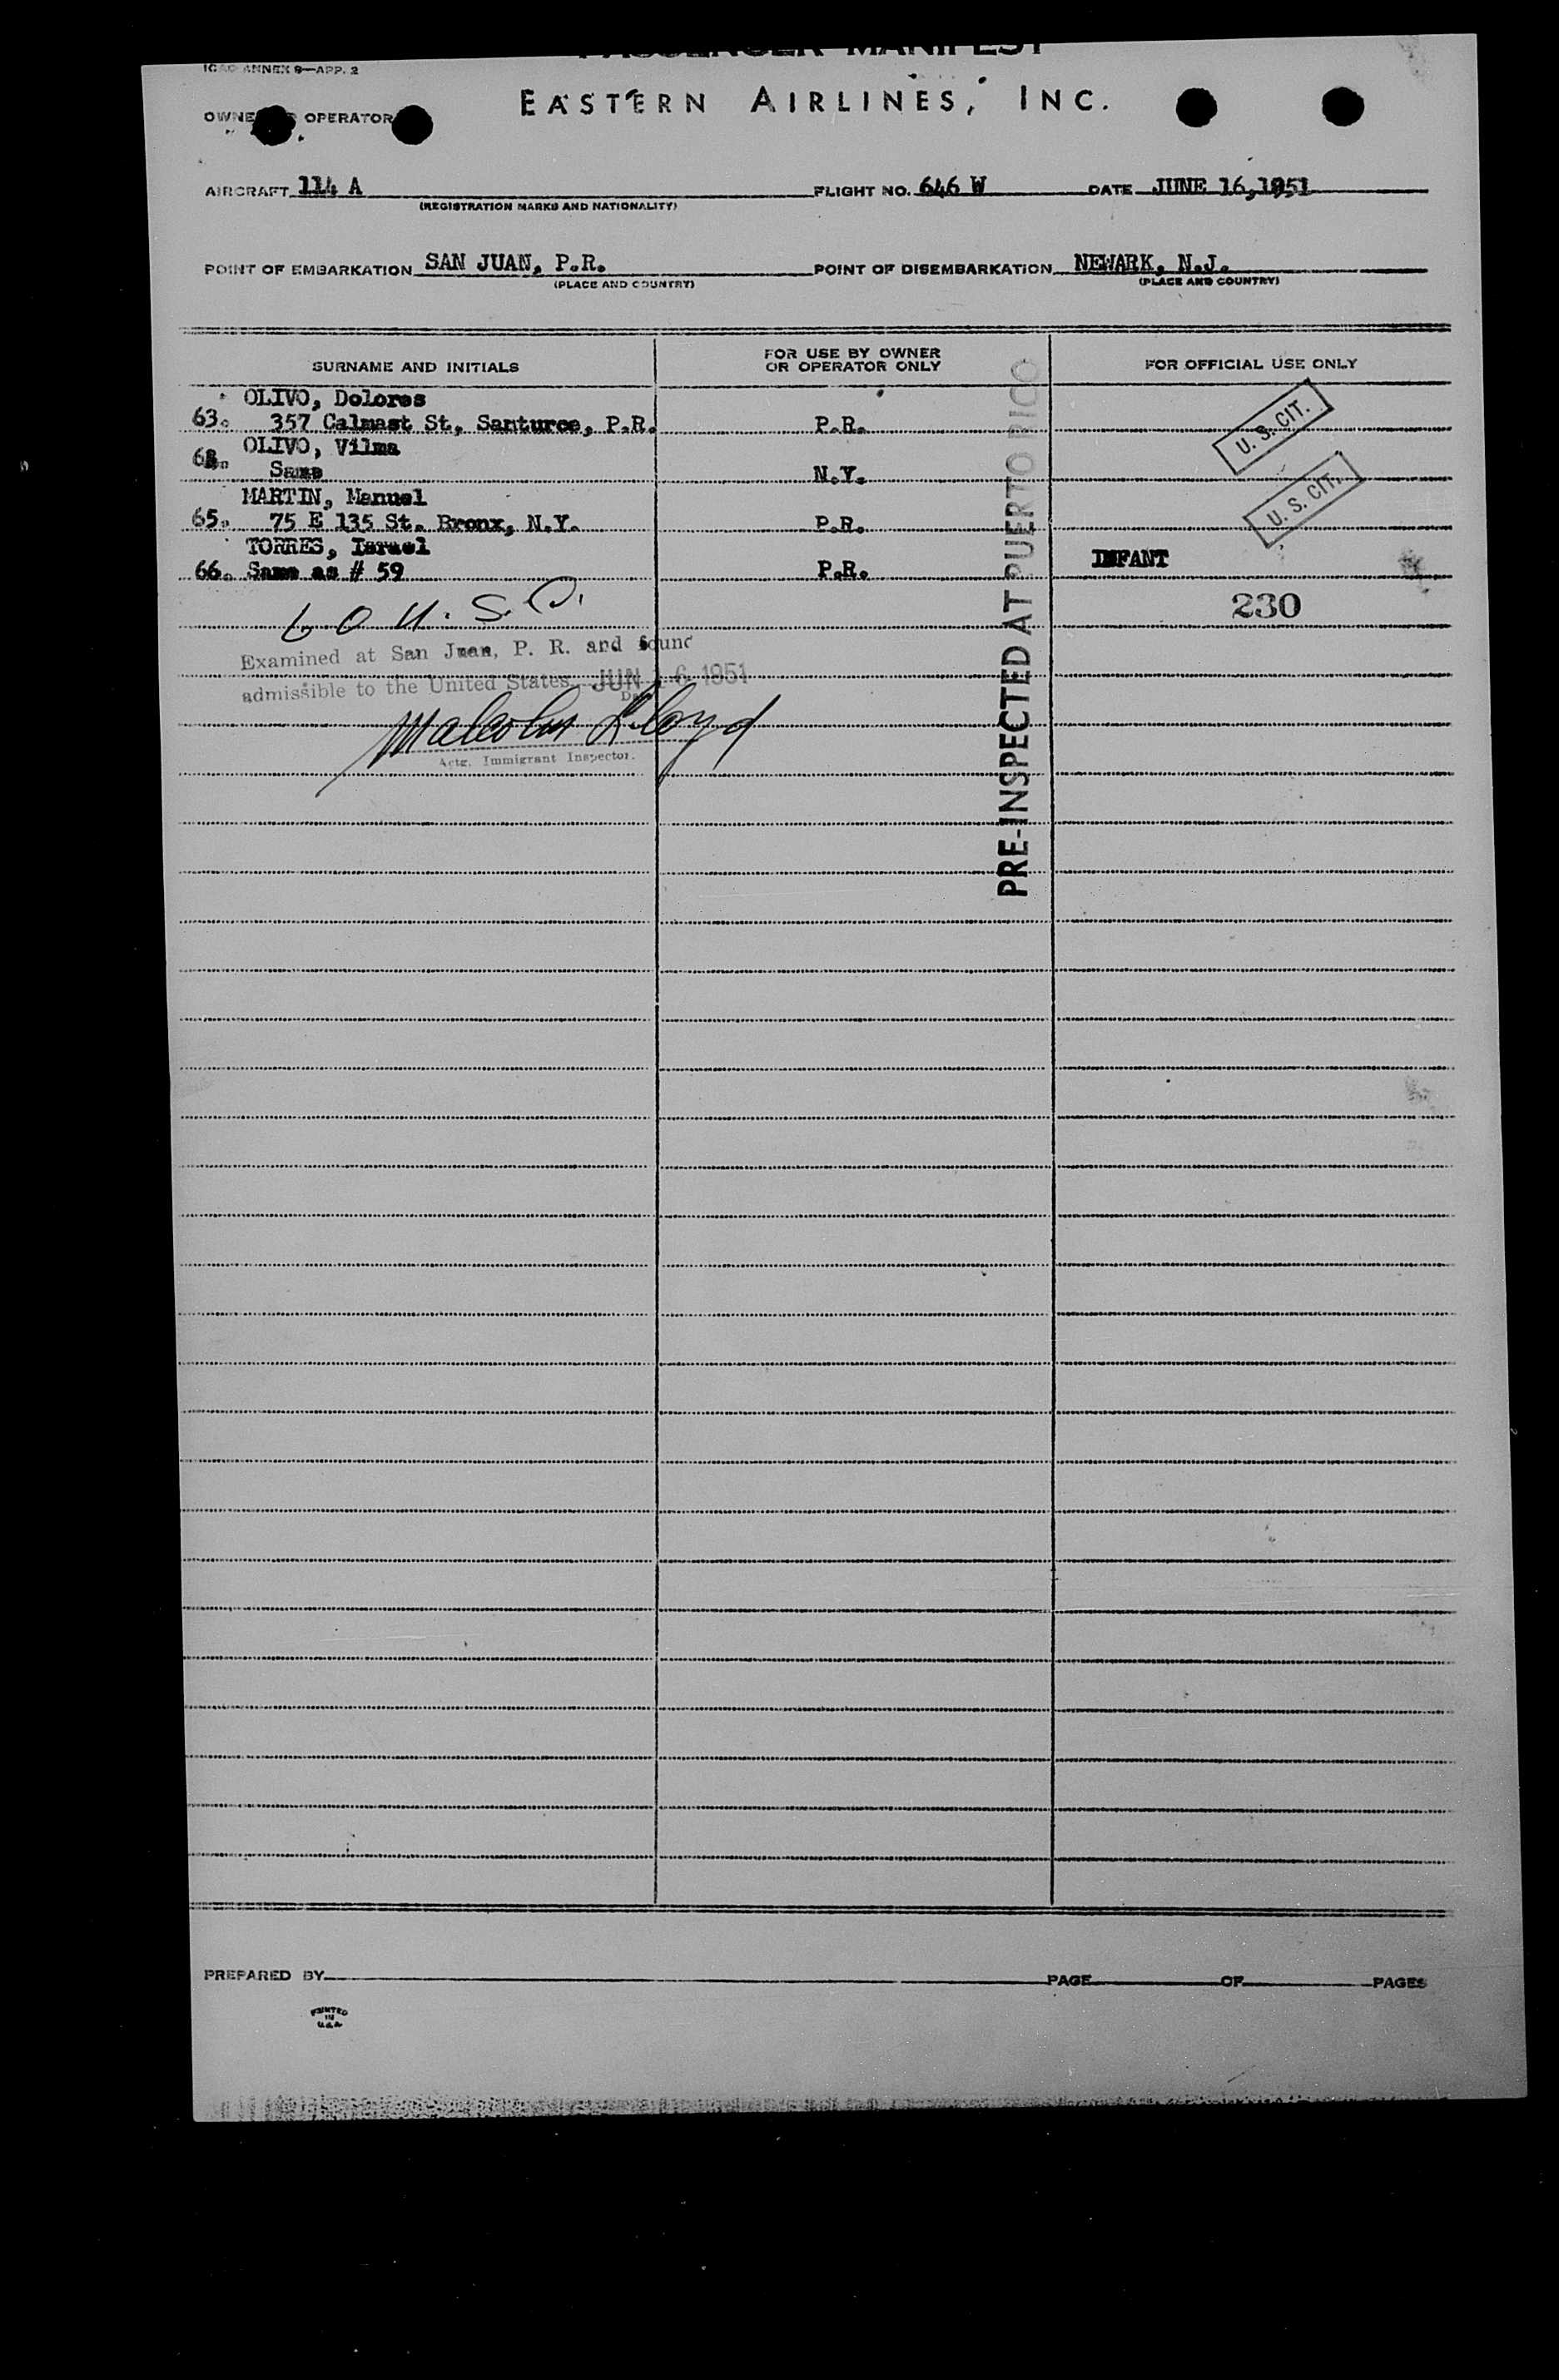 PASSENGER MANIFEST
ICAO ANNEX 9—APP. 2
EASTERN AIRLINES, INC.
OPERATOR
AIRCRAFT 114 A FLIGHT NO. 646 W DATE JUNE 16,1951
(REGISTRATION MARKS AND NATIONALITY)
POINT OF EMBARKATION SAN JUAN, P.R. POINT OF DISEMBARKATION NEWARK, N.J.
(PLACE AND COUNTRY) (PLACE AND COUNTRY)
SURNAME AND INITIALS FOR USE BY OWNER OR OPERATOR ONLY FOR OFFICIAL USE ONLY
OLIVO, Dolores
63. 357 Calmast St, Santurce, P.R. P.R. U. S. CIT.
OLIVO, Vilma
64. Same N.Y.
MARTIN, Manuel U. S. CIT.
65. 75 E 135 St. Bronx, N.Y. P.R.
TORRES, Israel INFANT
66. Same as # 59 P.R.
60 U.S.C. 230
Examined at San Juan, P. R. and found
admissible to the United States JUN 16 1951
Malcolm Lloyd
Actg. Immigrant Inspector.
PRE-INSPECTED AT PUERTO RICO
PREPARED BY PAGE OF PAGES
PRINTED
IN
U.S.A.